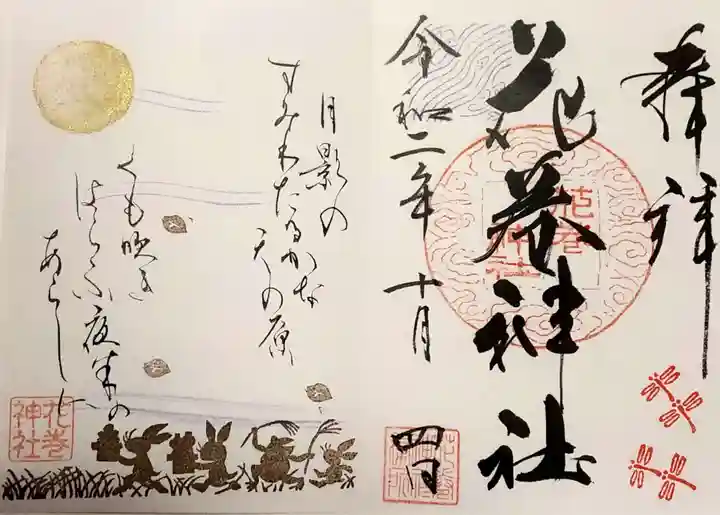 奉拝
花巻神社
花巻
神社
令和二年 十月 四日
月影の
すみわたるかな
天の原
くも吹き
はらふ夜半の
あらしに
花巻
神社